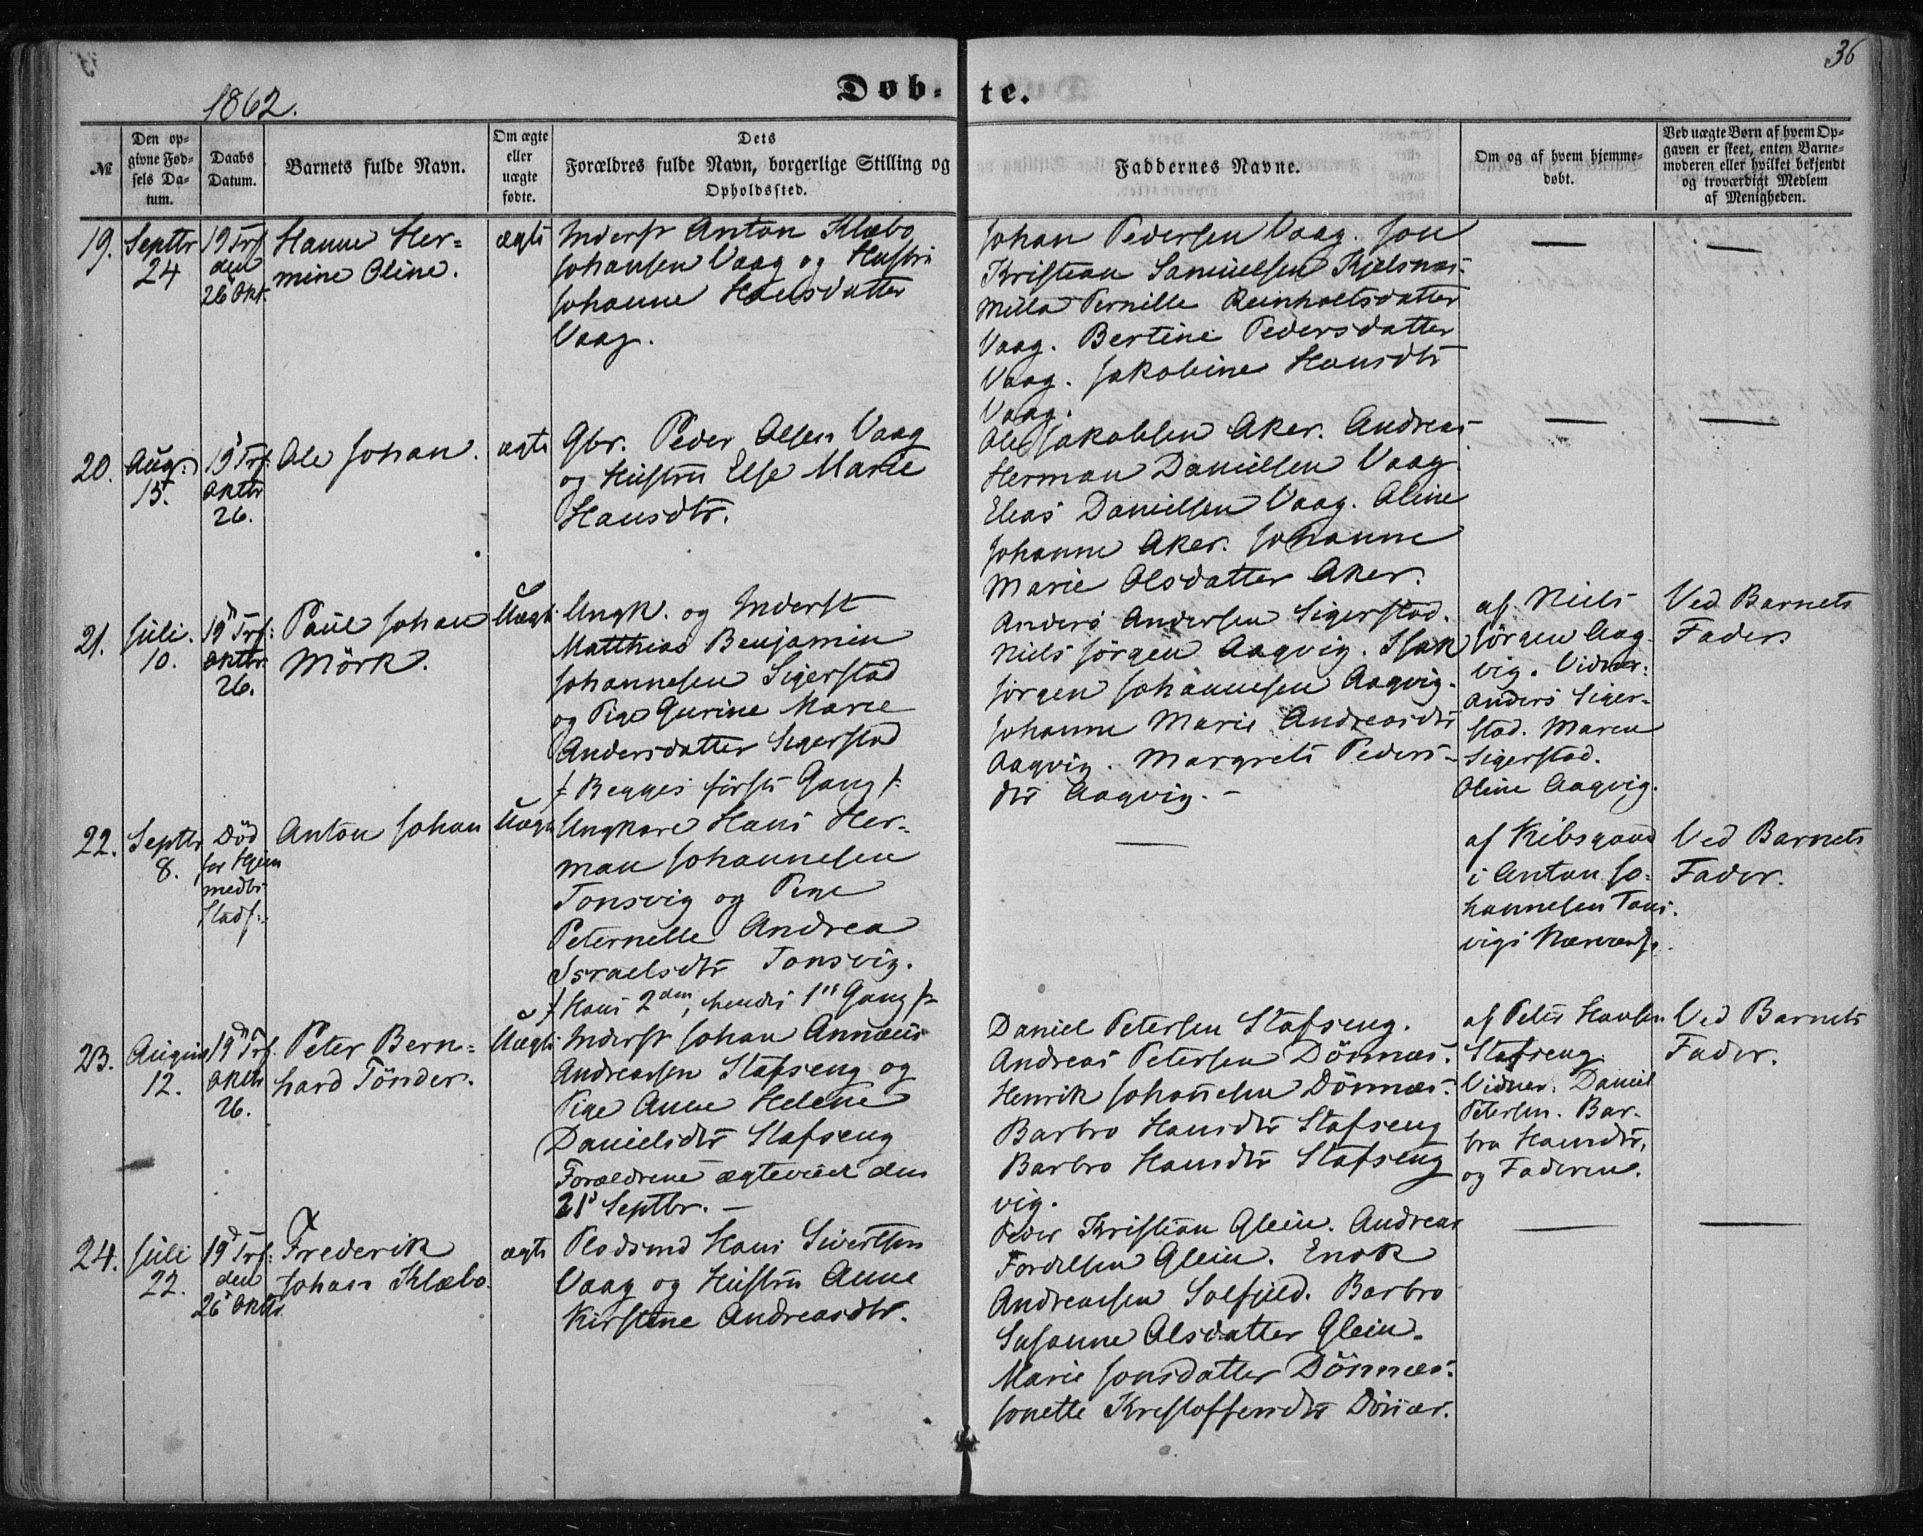 36
1862.
Døb-te.
№
Den op-
givne Fød-
sels Da-
tum.
Daabs
Datum.
Barnets fulde Navn.
Om ægte
eller
uægte
fødte.
Dets
Forældres fulde Navn, borgerlige Stilling og
Opholdssted.
Faddernes Navne.
Om og af hvem hjemme-
døbt.
Ved uægte Børn af hvem Op-
gaven er skeet, enten Barne-
moderen eller hvilket bekjendt
og troværdigt Medlem
af Menigheden.
19.
Septbr
24
19 Trf
den
26 Okt.
Hanne Her-
mine Oline.
ægte
Inderst Anton Klæbo
Johansen Vaag og Hustru
Johanne Hansdatter
Vaag.
Johan Pedersen Vaag. Jon
Kristian Samuelsen Kjelsnæs.
Milla Pernille Reinholtsdatter
Vaag. Bertine Pedersdatter
Vaag. Jakobine Hansdtr
Vaag.
—
—
20.
Aug.
15.
19 Trf.
Oktbr
26.
Ole Johan.
ægte
Gbr. Peder Olsen Vaag
og Hustru Else Marie
Hansdtr.
Ole Jakobsen Aker. Andreas
Herman Danielsen Vaag
Elias Danielsen Vaag. Oline
Johanne Aker. Johanne
Marie Olsdatter Aker.
—
—
21.
Juli.
10.
19 Trf:
Oktbr.
26.
Paul Johan
Mörk.
Uægte
Ungk. og Inderst
Matthias Benjamin
Johannesen Sigerstad
og Pige Gurine Marie
Andersdatter Sigerstad
/: Begges første Gang :/
Anders Andersen Sigerstad.
Niels Jörgen Aagvig. Isak
Jörgen Johannesen Aagvig.
Johanne Marie Andreasdtr
Aagvig. Margrete Peders-
dtr Aagvig. —
af Niels
Jörgen Aag-
vig. Vidner:
Anders Siger-
stad. Maren
Sigerstad.
Oline Aagvig.
Ved Barnets
Fader.
22.
Septbr
8.
Död
för Hjem
medbr
Stadf:.
Anton Johan
Uægte
Ungkare Hans Her-
man Johannesen
Tonsvig og Pige
Peternelle Andrea
Israelsdtr Tonsvig.
/: Hans 2den, hendes 1ste Gang :/
—
af Kibsgaard
i Anton Jo-
hannesen Tons-
vigs Nærvær
Ved Barnets
Fader.
23.
August
12.
19 Trf.
Oktbr
26.
Peter Bern-
hard Tönder.
Uægte
Inderst Johan Annæus
Andreassen Stafseng og
Pige Anne Helene
Danielsdtr Stafseng
Forældrene ægteviet den
21 Septbr. —
Daniel Petersen Stafseng.
Andreas Petersen Dönnæs.
Henrik Johannesen Dönnæs.
Barbro Hansdtr Stafseng
Barbro Hansdtr Stafseng
vig.
af Peter Hansen
Stafseng
Vidner. Daniel
Petersen. Bar-
bro Hansdtr,
og Faderen.
Ved Barnets
Fader.
24.
Juli
22.
19 Trf:
den
26 Oktbr.
Frederik
Johan Klæbo.
ægte
Pladsmd Hans Sivertsen
Vaag og Hustru Anne
Kirstine Andreasdtr.
Peder Kristian Glein. Andreas
Fordelsen Glein. Enok
Andreassen Solfjeld. Barbro
Susanne Olsdatter Glein.
Marie Jonsdatter Dönnæs.
Jonette Kristoffersdtr Dönæs.
—
—